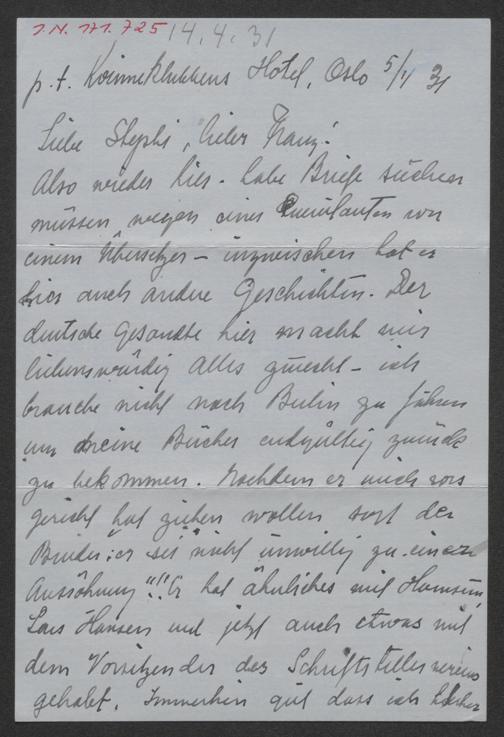 I.N. 171.725 14.4.31
p.t. Kvinneklubbens Hotel, Oslo 5/4 31
Liebe Stephi, lieber Franz!
Also wieder hier - habe Briefe suchen
müssen wegen eines Querulanten von
einem Übersetzer - inzwischen hat er
hier auch andere Geschichten. Der
deutsche Gesandte hier macht mir
liebenswürdig Alles zurecht - ich
brauche nicht nach Berlin zu fahren
um meine Bücher endgültig zurück
zu bekommen. Nachdem er mich vors
gericht hat ziehen wollen sagt der
Bruder: "er sei nicht unwillig zu einer
Aussöhnung"!! Er hat ähnliches mit Hamsun,
Lars Hansen und jetzt auch etwas mit
dem Vorsitzenden des Schriftstellervereins
gehabt. Immerhin gut dass ich